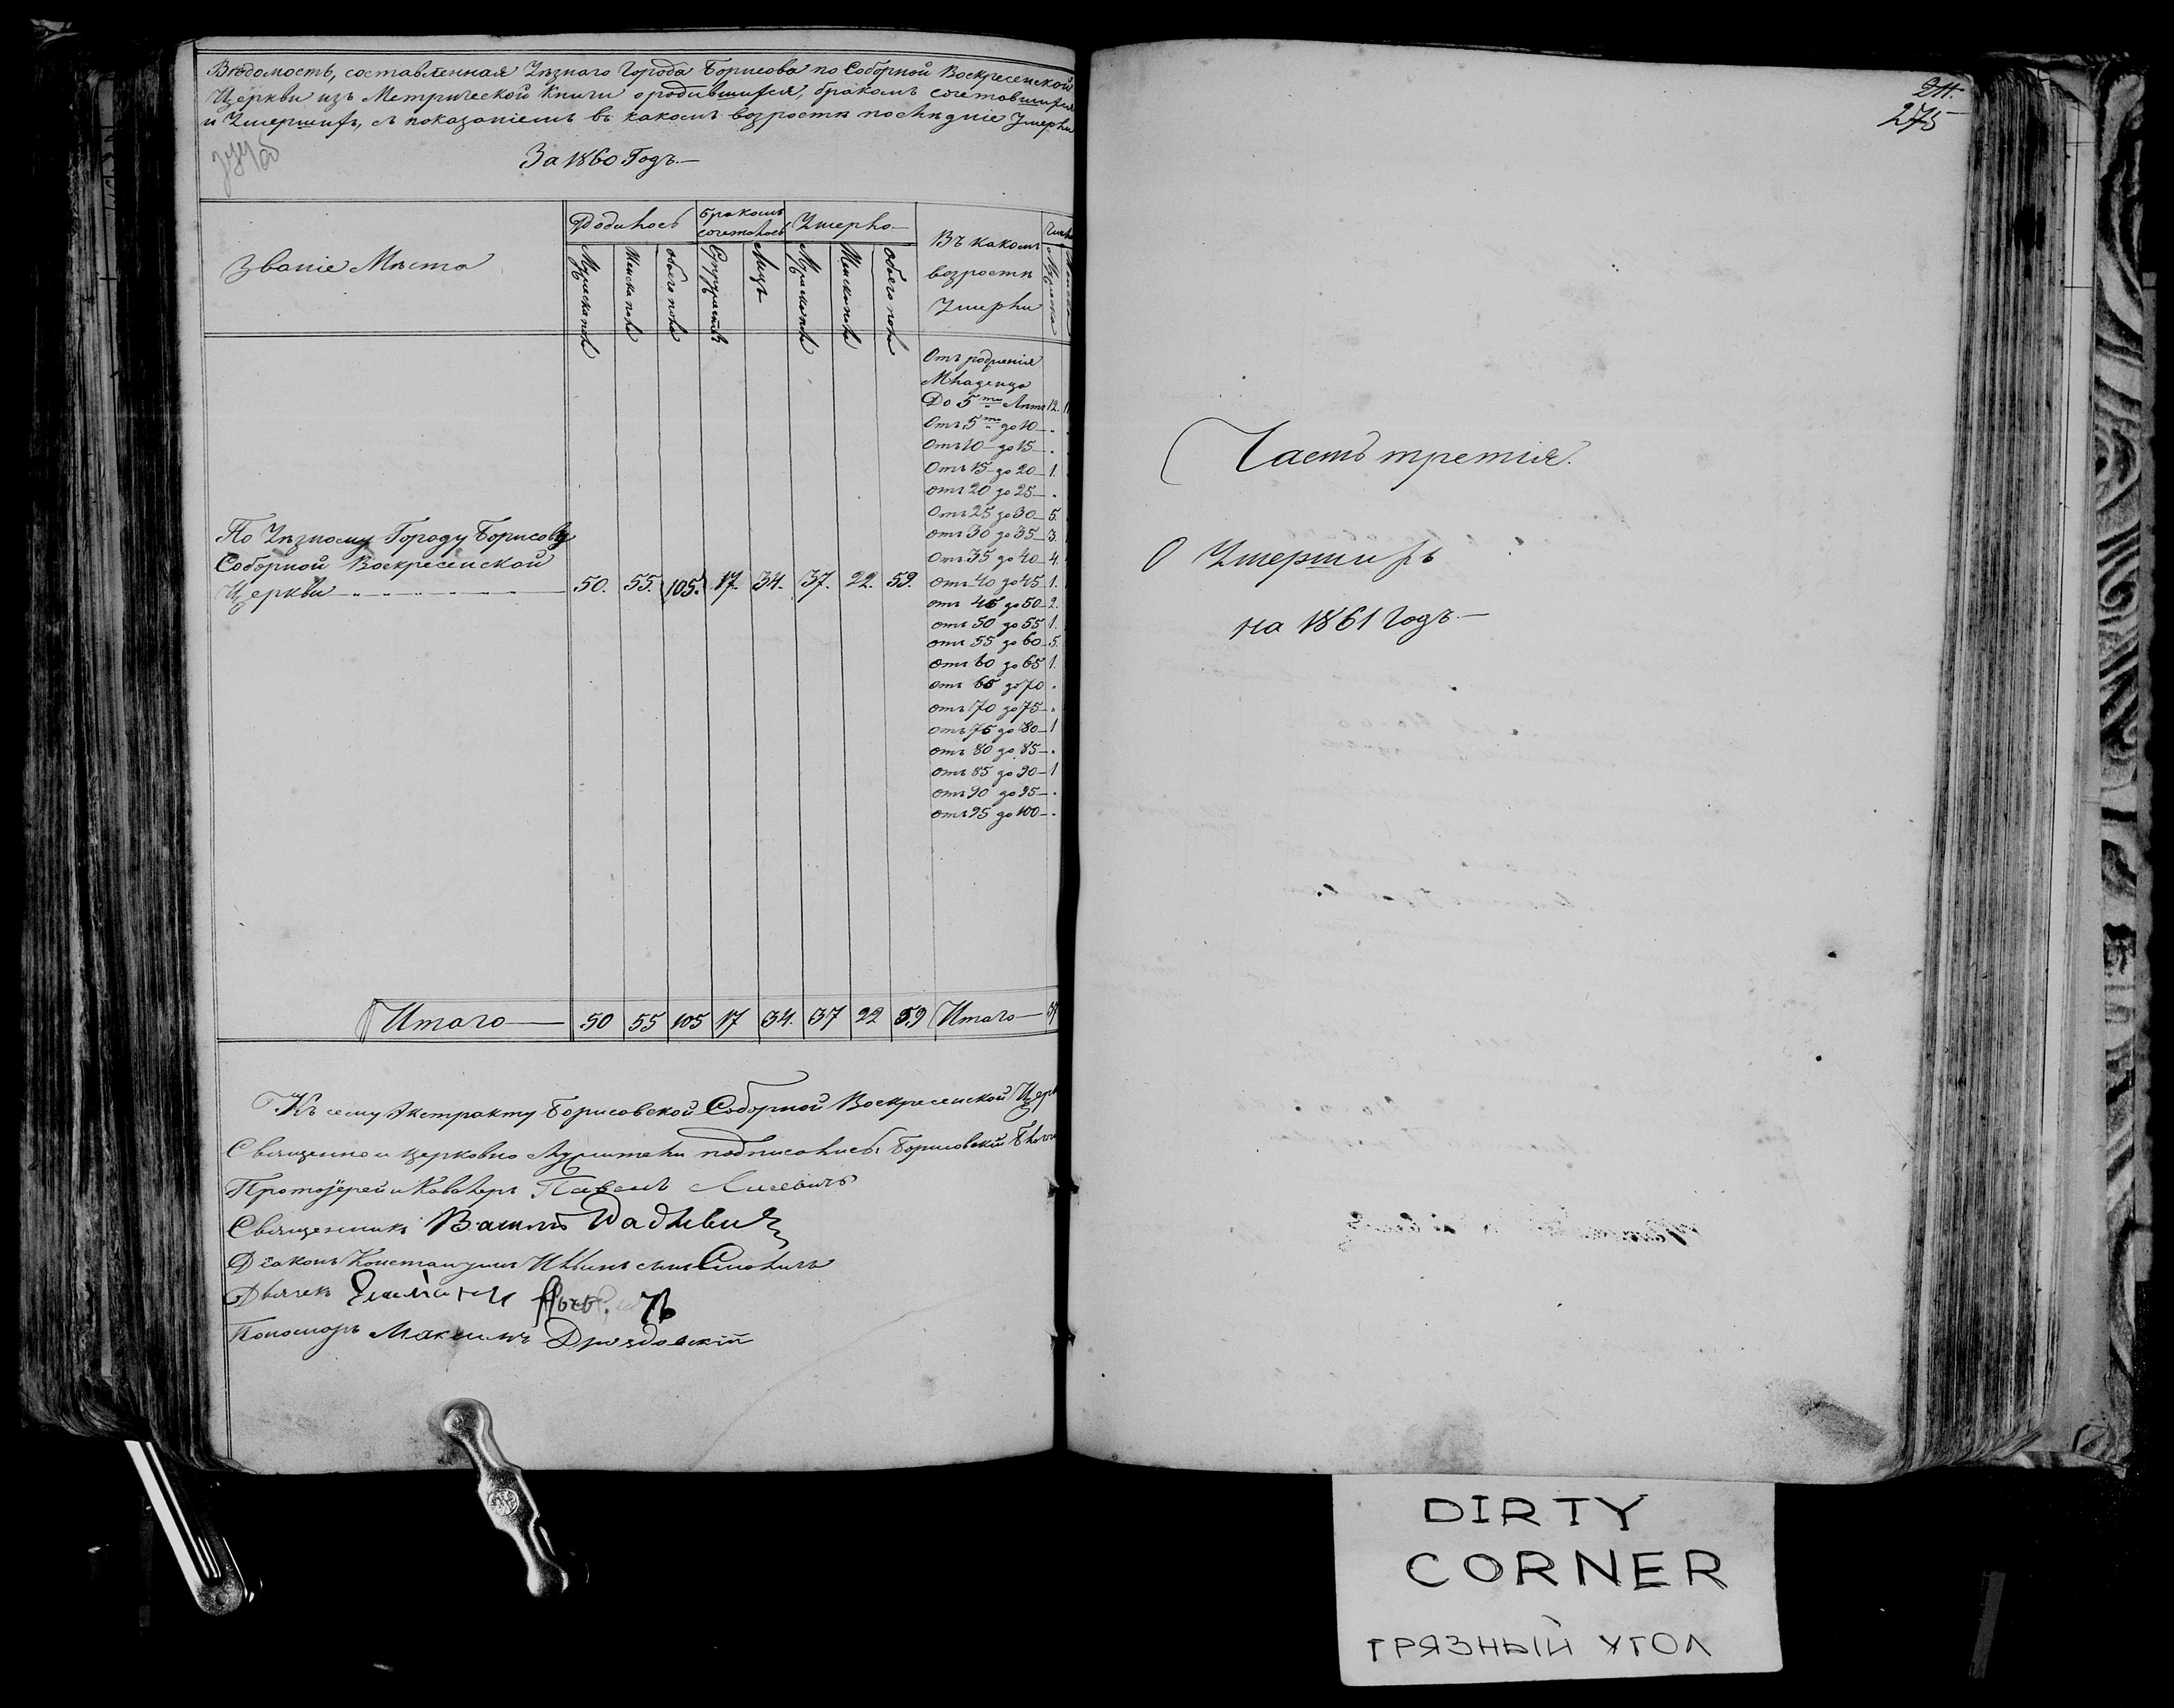 Вѣдомость, составленная Уѣзнаго Города Борисова по Соборной Воскресенской
Церкви изъ Метрической Книги о родившихся, бракомъ сочетавшихся
и Умершихъ, съ показаніемъ въ какомъ возростѣ послѣдніе Умерли
За 1860 Годъ.—
Званіе Мѣста
Родилось
Бракомъ сочеталось
Умерло
Въ какомъ возростѣ Умерли
Мужеска пола
Женска пола
Обоего пола
Супружествъ
Лицъ
Мужеска пола
Женска пола
Обоего пола
Отъ рожденія
Младенца
До 5ти Лѣтъ 12.
Отъ 5ти до 10 — .
Отъ 10 до 15 — .
Отъ 15 до 20 — 1.
отъ 20 до 25 — .
Отъ 25 до 30 — 5.
отъ 30 до 35 — 3.
Отъ 35 до 40 — 4.
отъ 40 до 45 1.
отъ 45 до 50 — 2.
отъ 50 до 55 1.
отъ 55 до 60 — 5.
отъ 60 до 65 1.
отъ 65 до 70 .
отъ 70 до 75 — .
отъ 75 до 80 — 1
отъ 80 до 85 — .
отъ 85 до 90 — 1
отъ 90 до 95 — .
отъ 95 до 100 — .
По Уѣзному Городу Борисову
Соборной Воскресенской
Церкви 50. 55. 105. 17. 34. 37. 22. 59.
Итого — 50 55 105 17 34. 37 22 59 Итого — 37
Къ сему Экстракту Борисовской Соборной Воскресенской
Священно и церковно Служители подписались: Борисовскій
Протоіерей и Кавалеръ Павелъ Лисевичъ
Священникъ
Діаконъ Константинъ
Дьячекъ
Пономарь Максимъ Дроздовскій
275
Часть третія.
О Умершихъ
на 1861 Годъ.—
DIRTY
CORNER
ГРЯЗНЫЙ УГОЛ